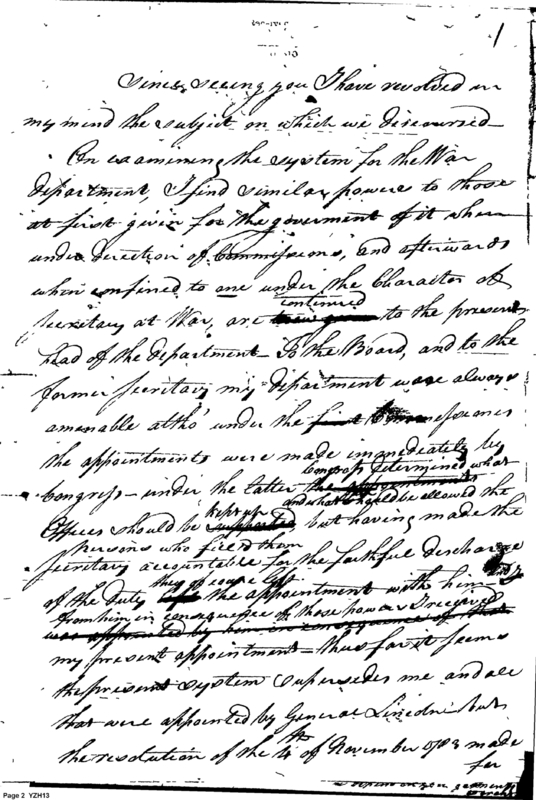 1
Since seeing you I have revolved in
my mind the subject on which we discoursed
On examining the system for the War
department, I find similar powers to those
at first given for the goverment of it when
under direction of Commissions, and afterwards
when confined to one under the Character of
continued
Secretary at War, are to the present
head of the department To the Board, and to the
former Secretary my department was always
amenable altho' under the first
the appointments were made immediately by
Congress determined what
Congress - under the latter the appointments
and what should be allowed the
kept up
Offices should be supported but having made the
Persons who filled them
Secretary accountable for the faithful discharge
they of course left
of the duty the appointment with him and
from him in consequence of those powers I received
was appointed by him in consequence of that
my present appointment - thus far it seems
the present system supersedes me and all
that were appointed by General Lincoln but
the resolution of the 4th of November 1783 made
for
Page 2 YZH13